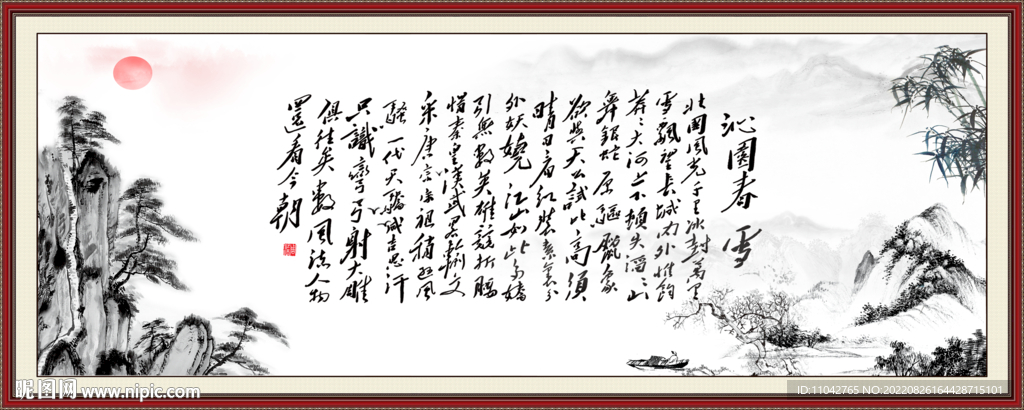 沁園春 雪
北国風光千里冰封萬里
雪飄望長城内外惟餘
莽々大河上下頓失滔々山
舞銀蛇原驅臘象
欲與天公試比高須
晴日看红装素裹分
外妖嬈 江山如此多嬌
引無數英雄競折腰
惜秦皇漢武略輸文
采唐宗宋祖稍遜風
騷一代天驕成吉思汗
只識彎弓射大雕
俱往矣數風流人物
還看今朝
昵图网 www.nipic.com
ID:11042765 NO:20220826164428715101